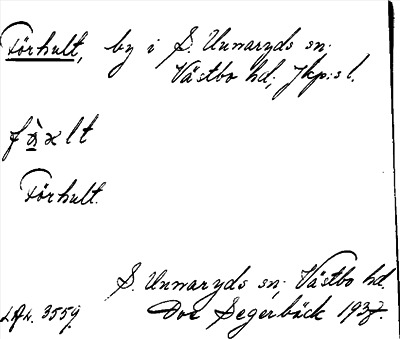 Förhult, by i S. Unnaryds sn.
Västbo hd, Jkp:s l.
Förhult.
S. Unnaryds sn; Västbo hd.
Dor Segerbäck 1937.